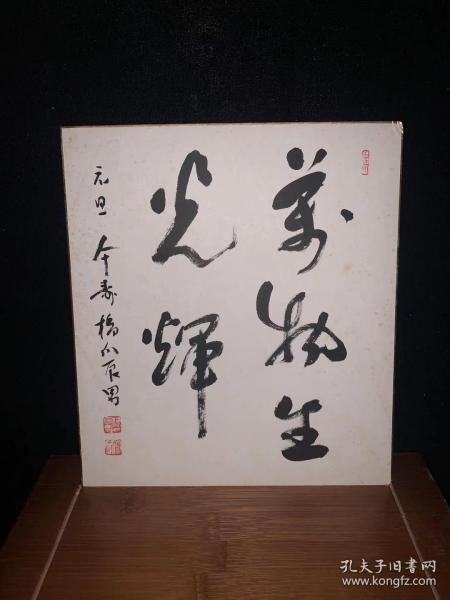 萬物生
光輝
元旦 傘壽 橋爪辰男
孔夫子旧书网
www.kongfz.com